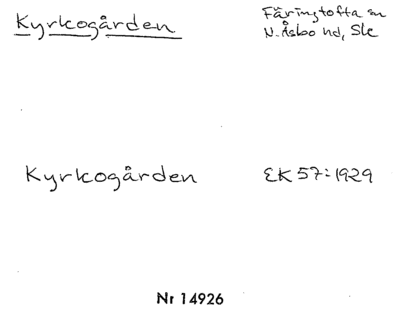 Kyrkogården
Färingtofta sn
N. Åsbo hd, Sk
Kyrkogården
EK 57:1929
Nr 14926